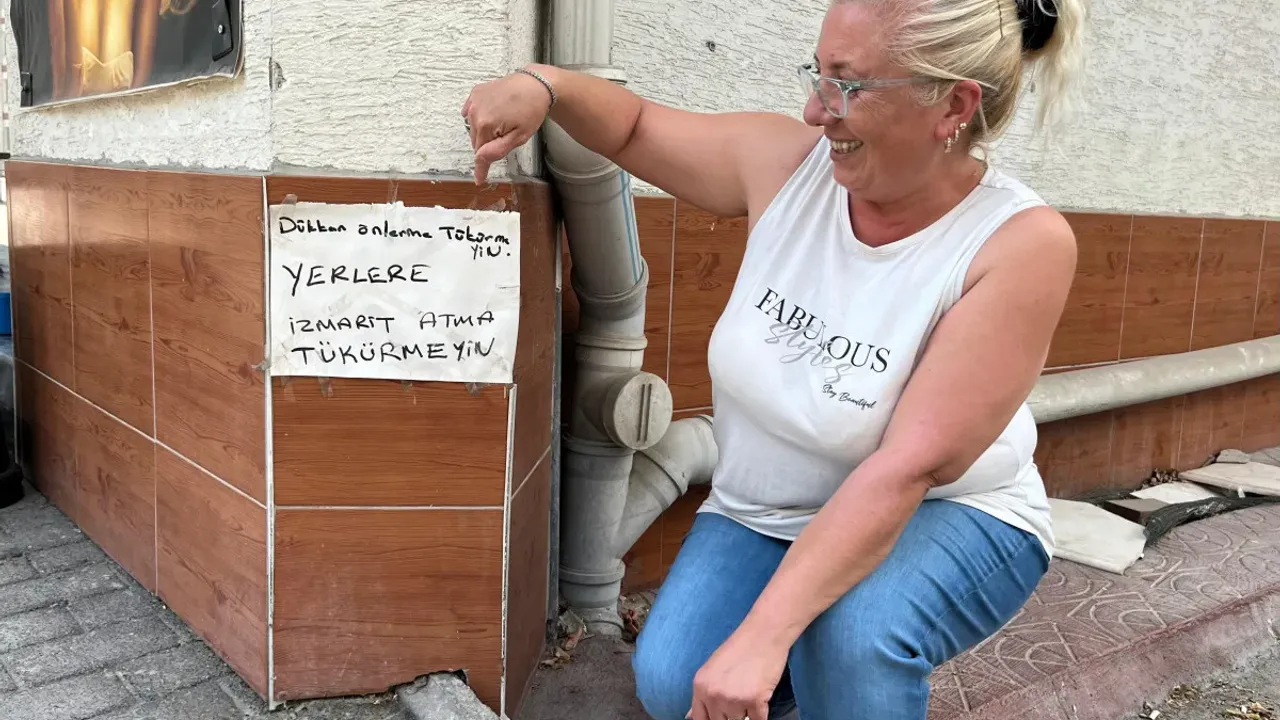 Dükkan önlerine Tükürme
YİN.
YERLERE
İZMARİT ATMA
TÜKÜRMEYİN
FABULOUS
styles
Stay Beautiful